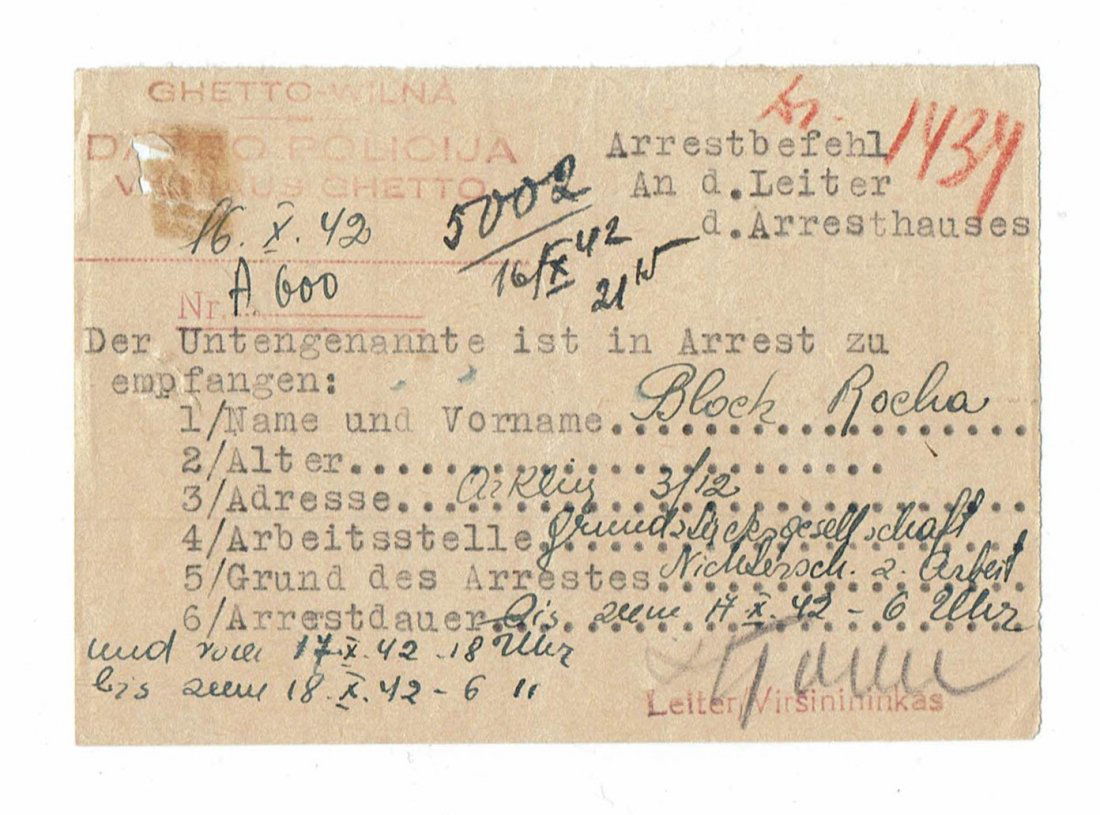 GHETTO-WILNA
POLICIJA
GHETTO
16. X. 42
A 600
Nr.
5002
16/X 42
21 15
Nr. 1434
Arrestbefehl
An d.Leiter
d.Arresthauses
Der Untengenannte ist in Arrest zu
empfangen:
1/Name und Vorname Bloch Rocha
2/Alter
3/Adresse 3/12
4/Arbeitsstelle Grundstücksgesellschaft
5/Grund des Arrestes Nichtersch. z. Arbeit
6/Arrestdauer bis zum 17.X.42 - 6 Uhr
und vom 17.X.42 - 18 Uhr
bis zum 18.X.42 - 6 "
Leiter/Viršinininkas